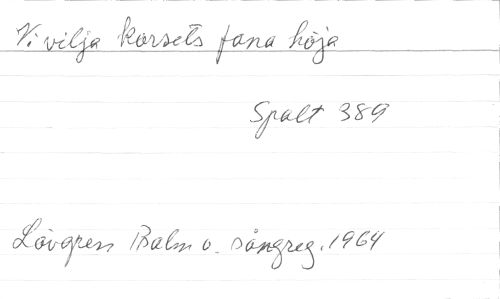 Vi vilja korsets fana höja
Spalt 389
Lövgren Psalm o. sångreg. 1964